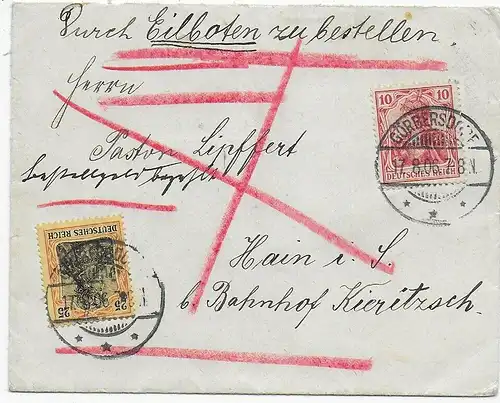 Durch Eilboten zu bestellen.
Herrn
Pastor Lipffert
Bestellgeld bezahlt
Hain i. S.
b. Bahnhof Kieritzsch.
10
DEUTSCHES REICH
GÖRBERSDORF
17.8.06. 7-8.N.
DEUTSCHES REICH
25 25